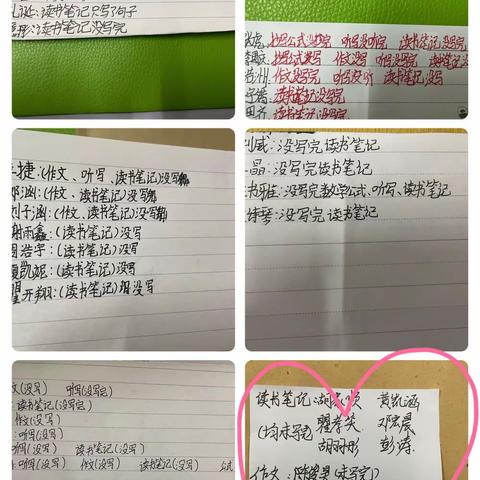 礼诞:读书笔记只写了句子
读书笔记没写完
抄写公式没写完 听写没听完 读书笔记没写完
抄写公式没写 作文没写 听写没写完 读书笔记
作文没写完 听写没听 读书笔记没写
读书笔记没写完
读书笔记没写完
捷:(作文、听写、读书笔记)没写
邓涵:(作文、读书笔记)没写
刘子涵:(作文、读书笔记)没写
谢雨鑫:(读书笔记)没写
周浩宇:(读书笔记)没写
夏凯妮:(读书笔记)没写
翟开翔:(读书笔记)没写
威:没写完读书笔记
晶:没写完读书笔记
雅:没写完数学公式、听写、读书笔记
诗琴:没写完读书笔记
文(没写) 听写(没写完)
读书笔记(没写完)
作文(没写)
听写(没写)
听写(没写) 读书笔记(没写)
听写(没写) 作文(没写) 读书笔记(没写) 公式
读书笔记: 黄凯涵
(均未写完) 邓宇晨
胡羽彤 彭涛
作文: (未写完)